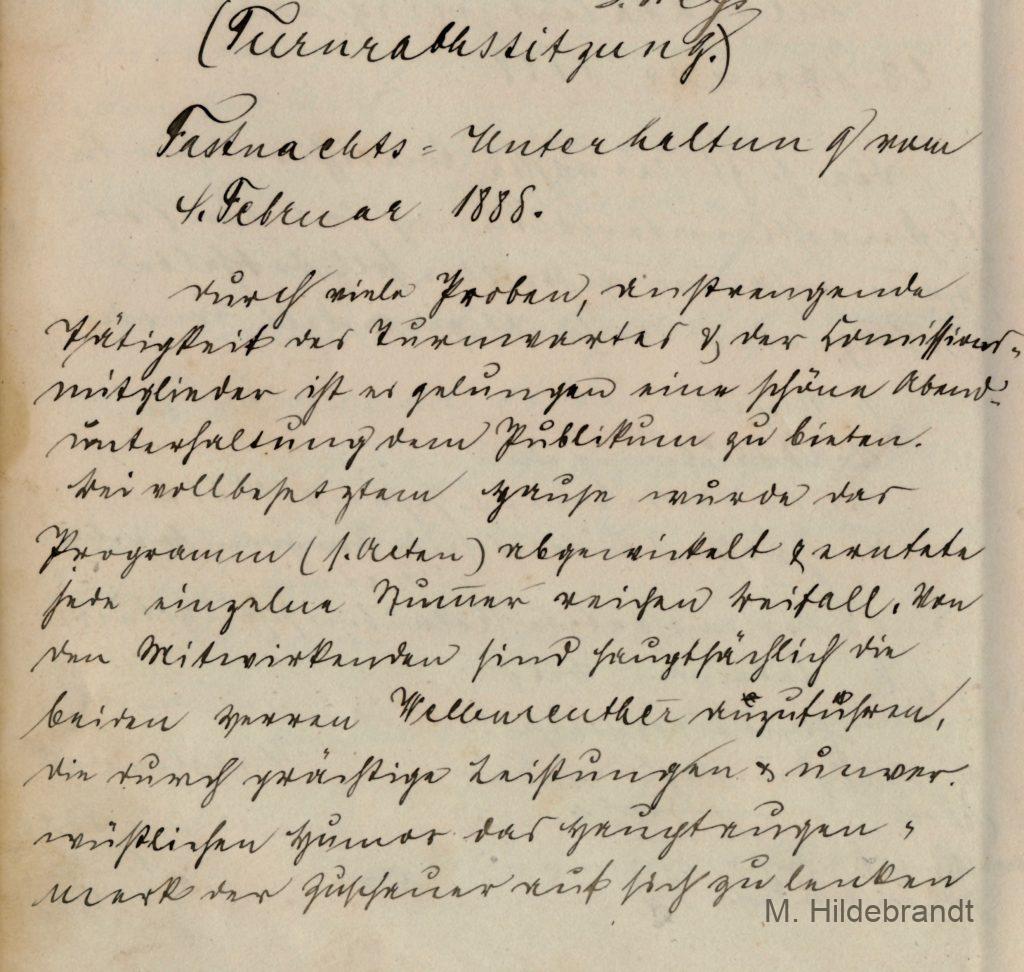 (Turnrathssitzung.)
Fastnachts = Unterhaltung vom
4. Februar 1888.
Durch viele Proben, anstrengende
Thätigkeit des Turnwartes & der Comissions-
mitglieder ist es gelungen eine schöne Abend-
unterhaltung dem Publikum zu bieten.
Bei vollbesetztem Hause wurde das
Programm (s. Acten) abgewickelt & erntete
jede einzelne Num̅er reichen Beifall. Von
den Mitwirkenden sind hauptsächlich die
beiden Herren anzuführen,
die durch prächtige Leistungen & unver-
wüstlichen Humor das Hauptaugen-
merk der Zuschauer auf sich zu lenken
M. Hildebrandt